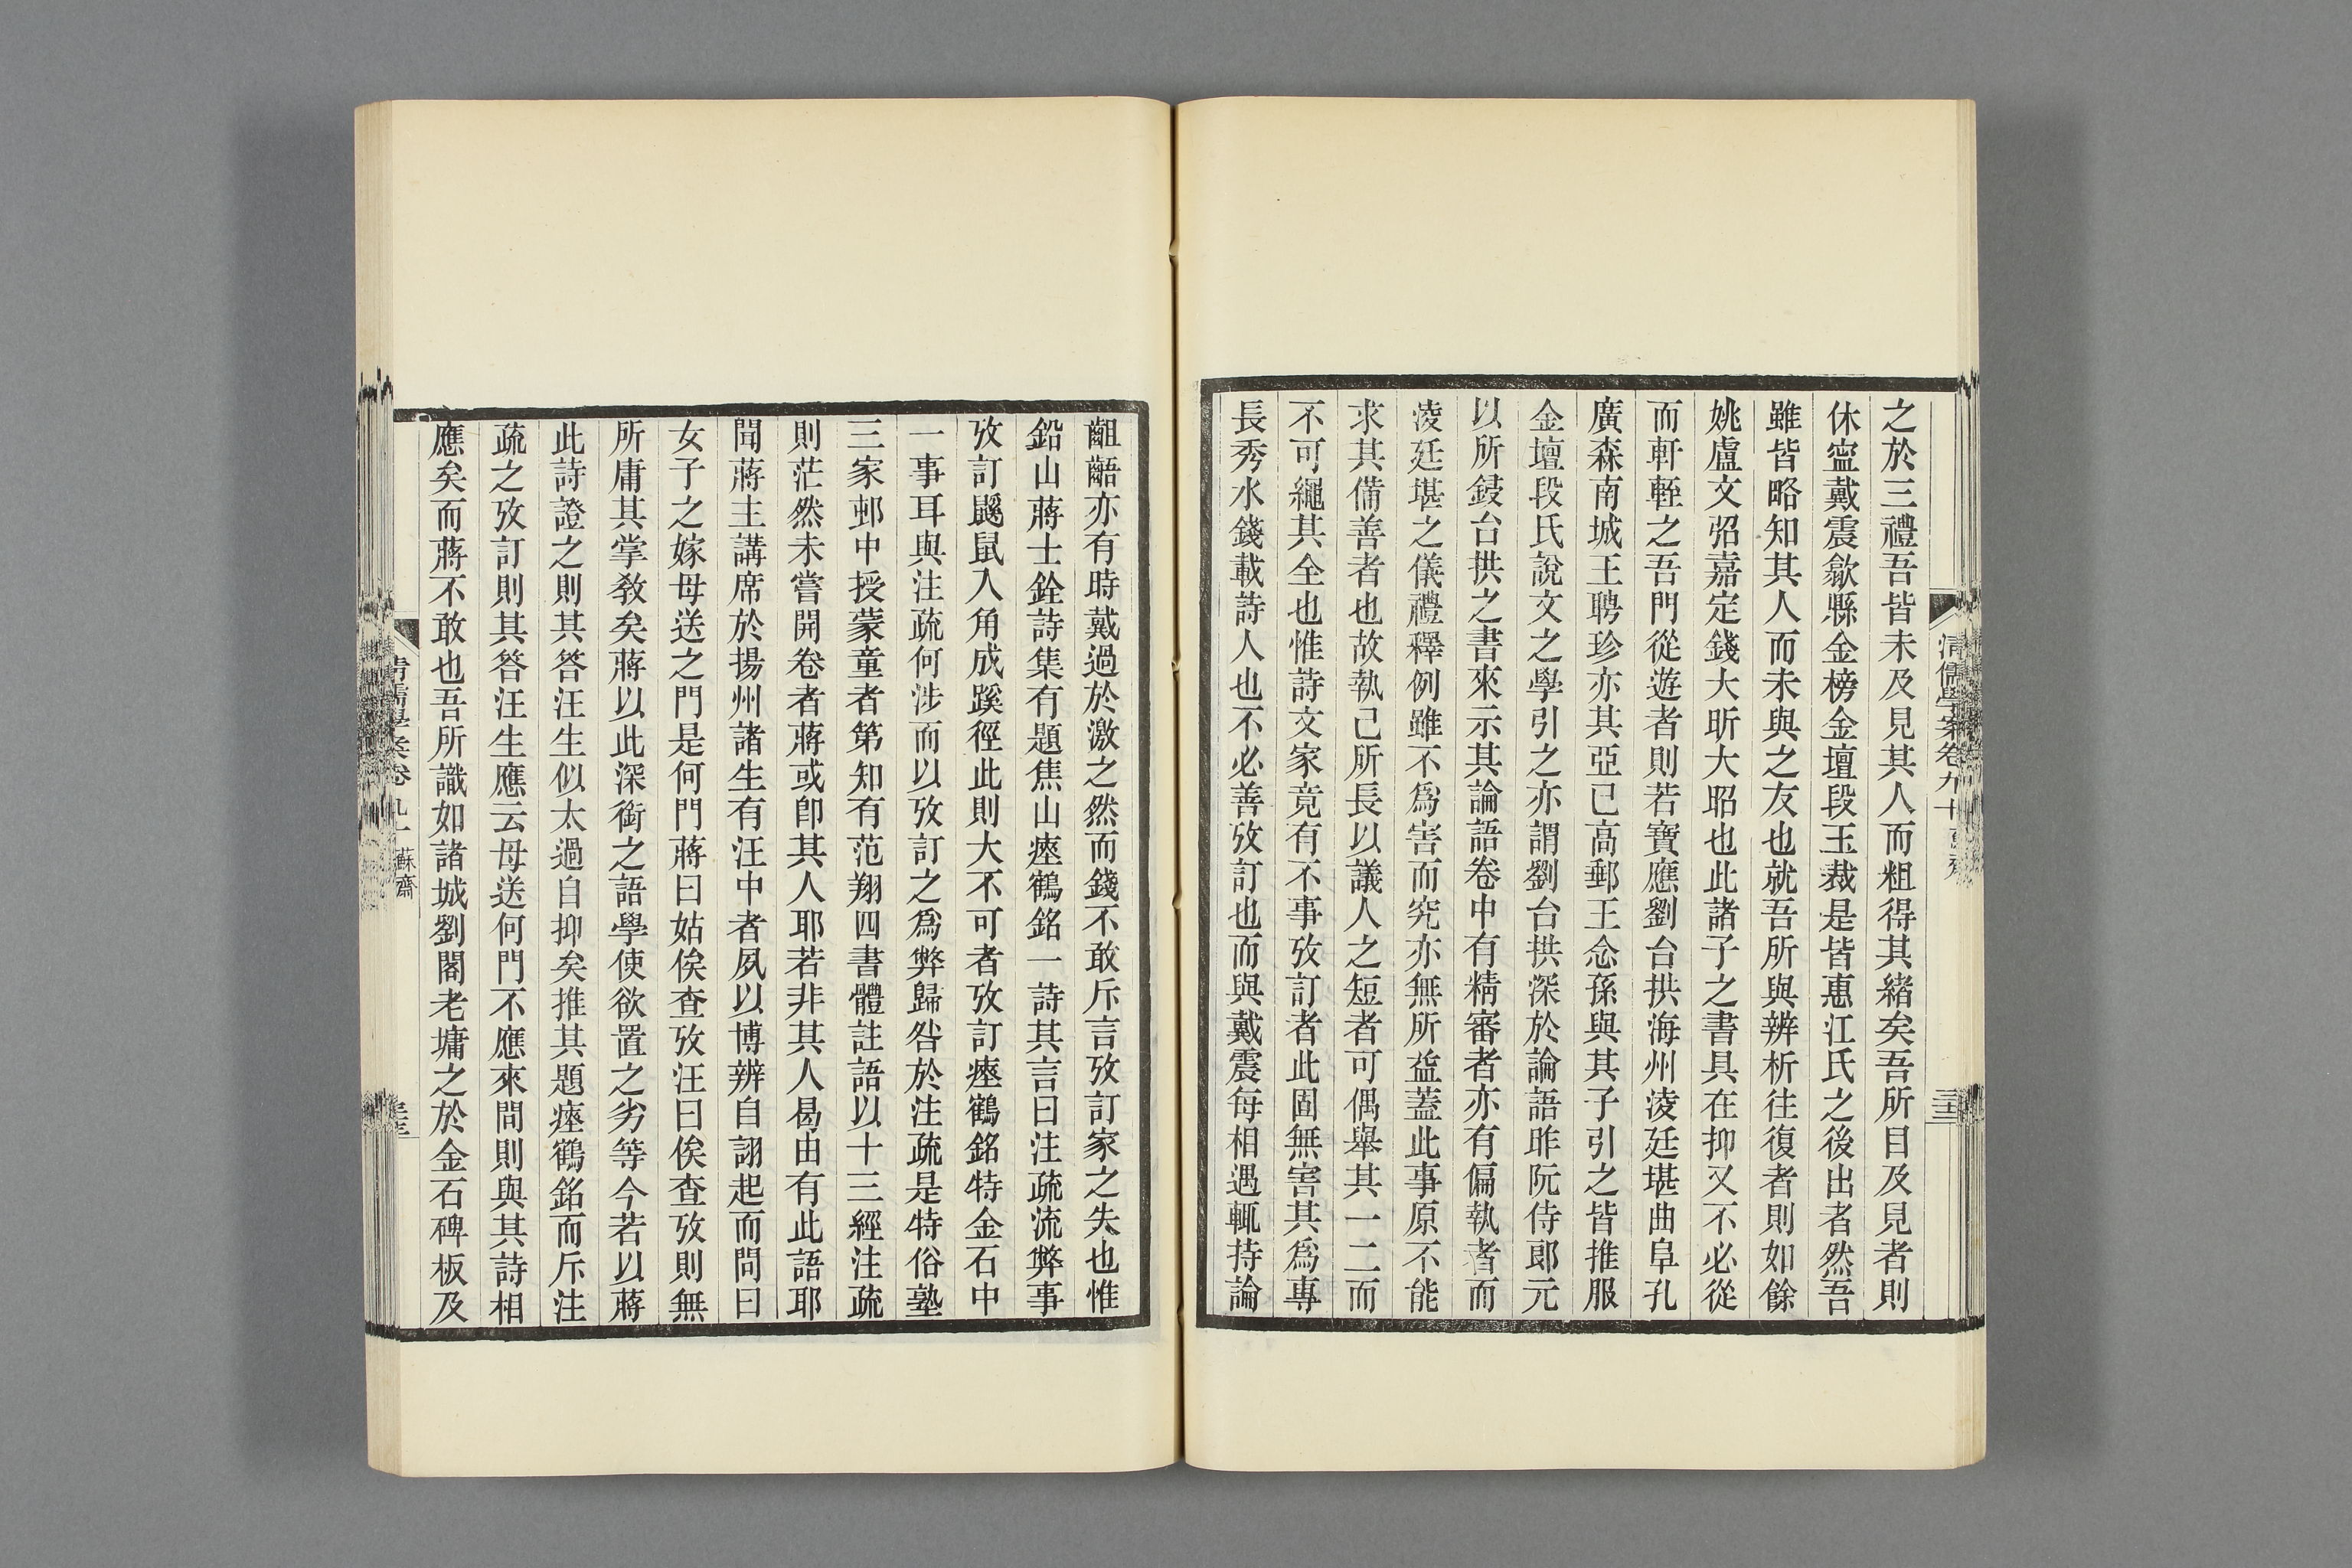 之於三禮吾皆未及見其人而粗得其緒矣吾所目及見者則
休寍戴震歙縣金榜金壇段玉裁是皆惠江氏之後出者然吾
雖皆略知其人而未與之友也就吾所與辨析往復者則如餘
姚盧文弨嘉定錢大昕大昭也此諸子之書具在抑又不必從
而軒輊之吾門從遊者則若寶應劉台拱海州淩廷堪曲阜孔
廣森南城王聘珍亦其亞已高郵王念孫與其子引之皆推服
金壇段氏說文之學引之亦謂劉台拱深於論語昨阮侍郎元
以所鋟台拱之書來示其論語卷中有精審者亦有偏執者而
淩廷堪之儀禮釋例雖不爲害而究亦無所益蓋此事原不能
求其備善者也故執己所長以議人之短者可偶舉其一二而
不可繩其全也惟詩文家竟有不事攷訂者此固無害其爲專
長秀水錢載詩人也不必善攷訂也而與戴震每相遇輒持論
清儒學案卷九十 蘇齋
三十三
齟齬亦有時戴過於激之然而錢不敢斥言攷訂家之失也惟
鉛山蔣士銓詩集有題焦山瘞鶴銘一詩其言曰注疏流弊事
攷訂鼷鼠入角成蹊徑此則大不可者攷訂瘞鶴銘特金石中
一事耳與注疏何涉而以攷訂之爲弊歸咎於注疏是特俗塾
三家邨中授蒙童者第知有范翔四書體註語以十三經注疏
則茫然未嘗開卷者蔣或卽其人耶若非其人曷由有此語耶
聞蔣主講席於揚州諸生有汪中者夙以博辨自詡起而問曰
女子之嫁母送之門是何門蔣曰姑俟查攷汪曰俟查攷則無
所庸其掌教矣蔣以此深銜之語學使欲置之劣等今若以蔣
此詩證之則其答汪生似太過自抑矣推其題瘞鶴銘而斥注
疏之攷訂則其答汪生應云母送何門不應來問則與其詩相
應矣而蔣不敢也吾所識如諸城劉閣老墉之於金石碑板及
蘇齋